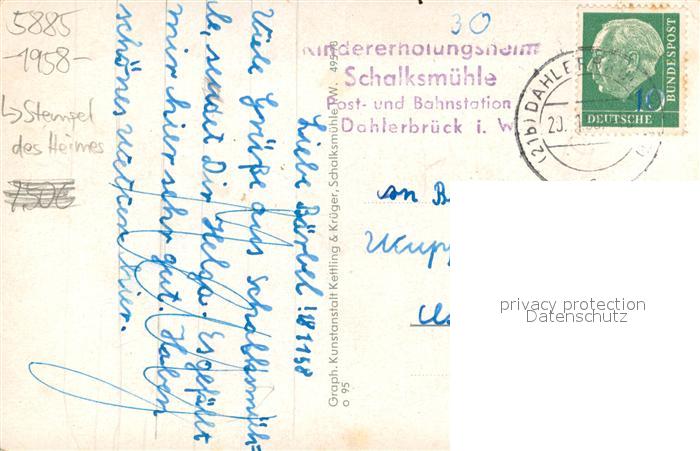 5885
-1958-
↳ Stempel
des Heimes
750€
30
Kindererholungsheim
Schalksmühle
Post- und Bahnstation
Dahlerbrück i. W
(21b) DAHLERBR
20.
10
DEUTSCHE
BUNDESPOST
Liebe Bärbel! 18 1 58
Viele Grüße aus Schalksmüh-
le, sendet Dir Helga. Es gefällt
mir hier sehr gut. Haben
schönes Wetter hier.
Graph. Kunstanstalt Kettling & Krüger, Schalksmühle i. W.
o 95
an B
Wupp
privacy protection
Datenschutz